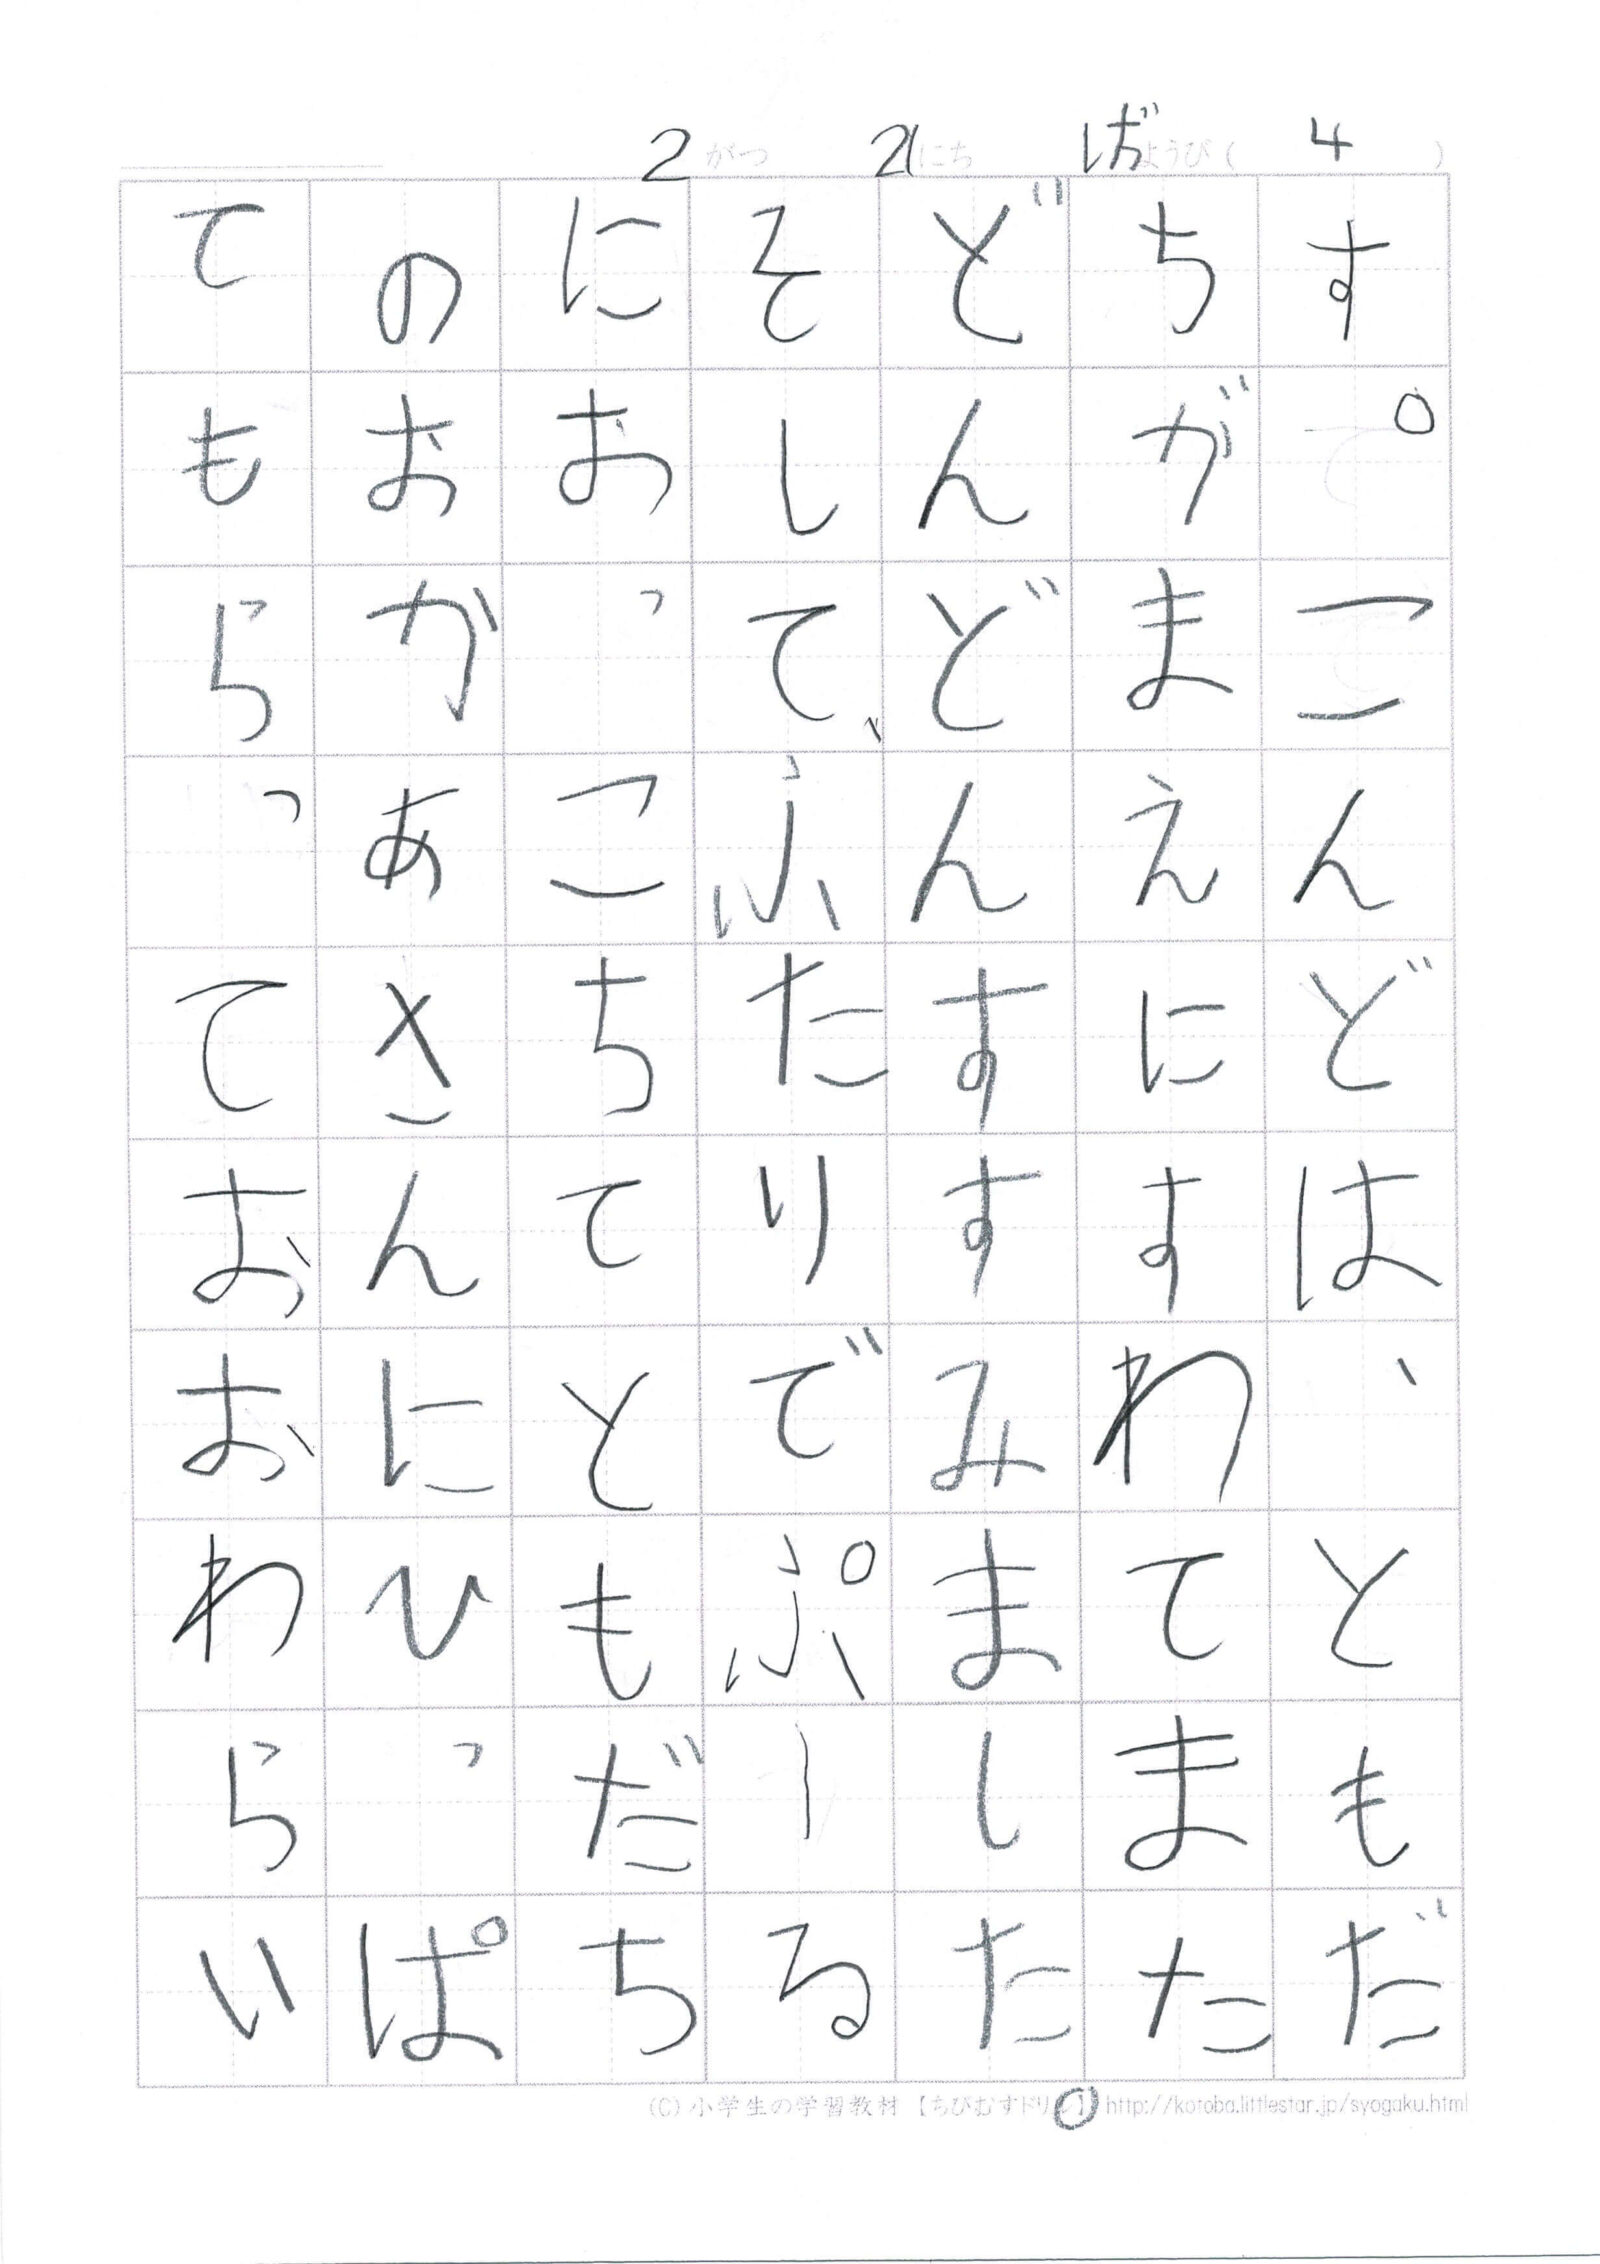 2がつ 21にち げつようび( 4 )
す。こんどは、ともだ
ちがまえにすわてまた
どんどんすすみました
そして、ふたりでぷーる
におっこちてともだち
のおかあさんにひっぱ
てもらっておおわらい
(C)小学生の学習教材 【ちびむすドリル】 http://kotoba.littlestar.jp/syogaku.html